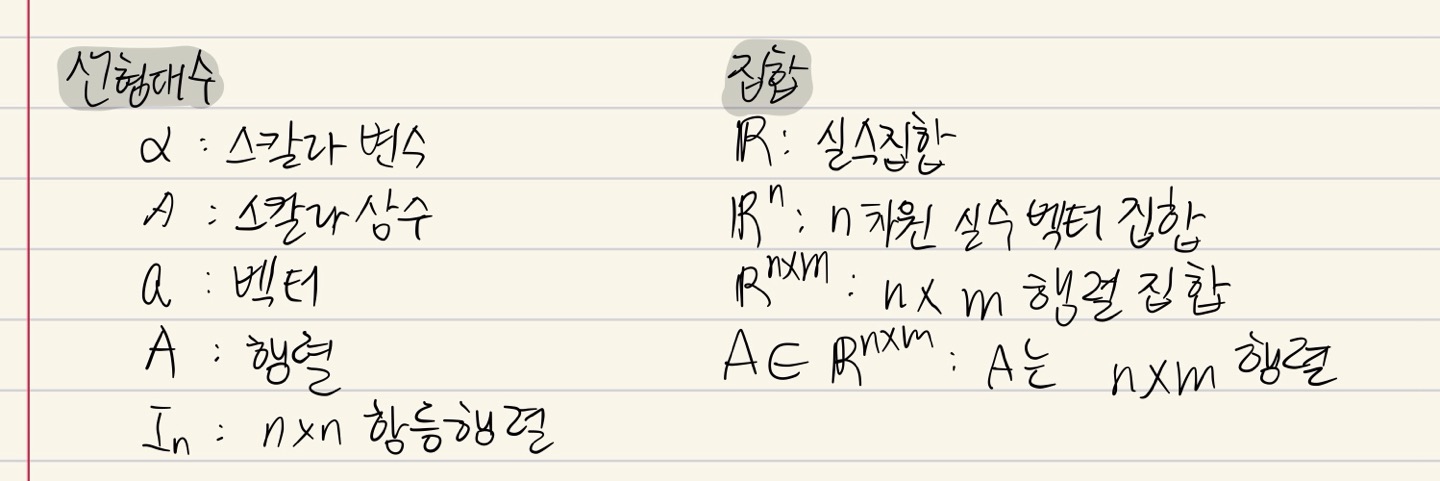 선형대수
α : 스칼라 변수
A : 스칼라 상수
a : 벡터
A : 행렬
Iₙ : n×n 항등행렬
집합
ℝ : 실수집합
ℝⁿ : n차원 실수 벡터 집합
ℝⁿˣᵐ : n×m 행렬 집합
A∈ℝⁿˣᵐ : A는 n×m 행렬